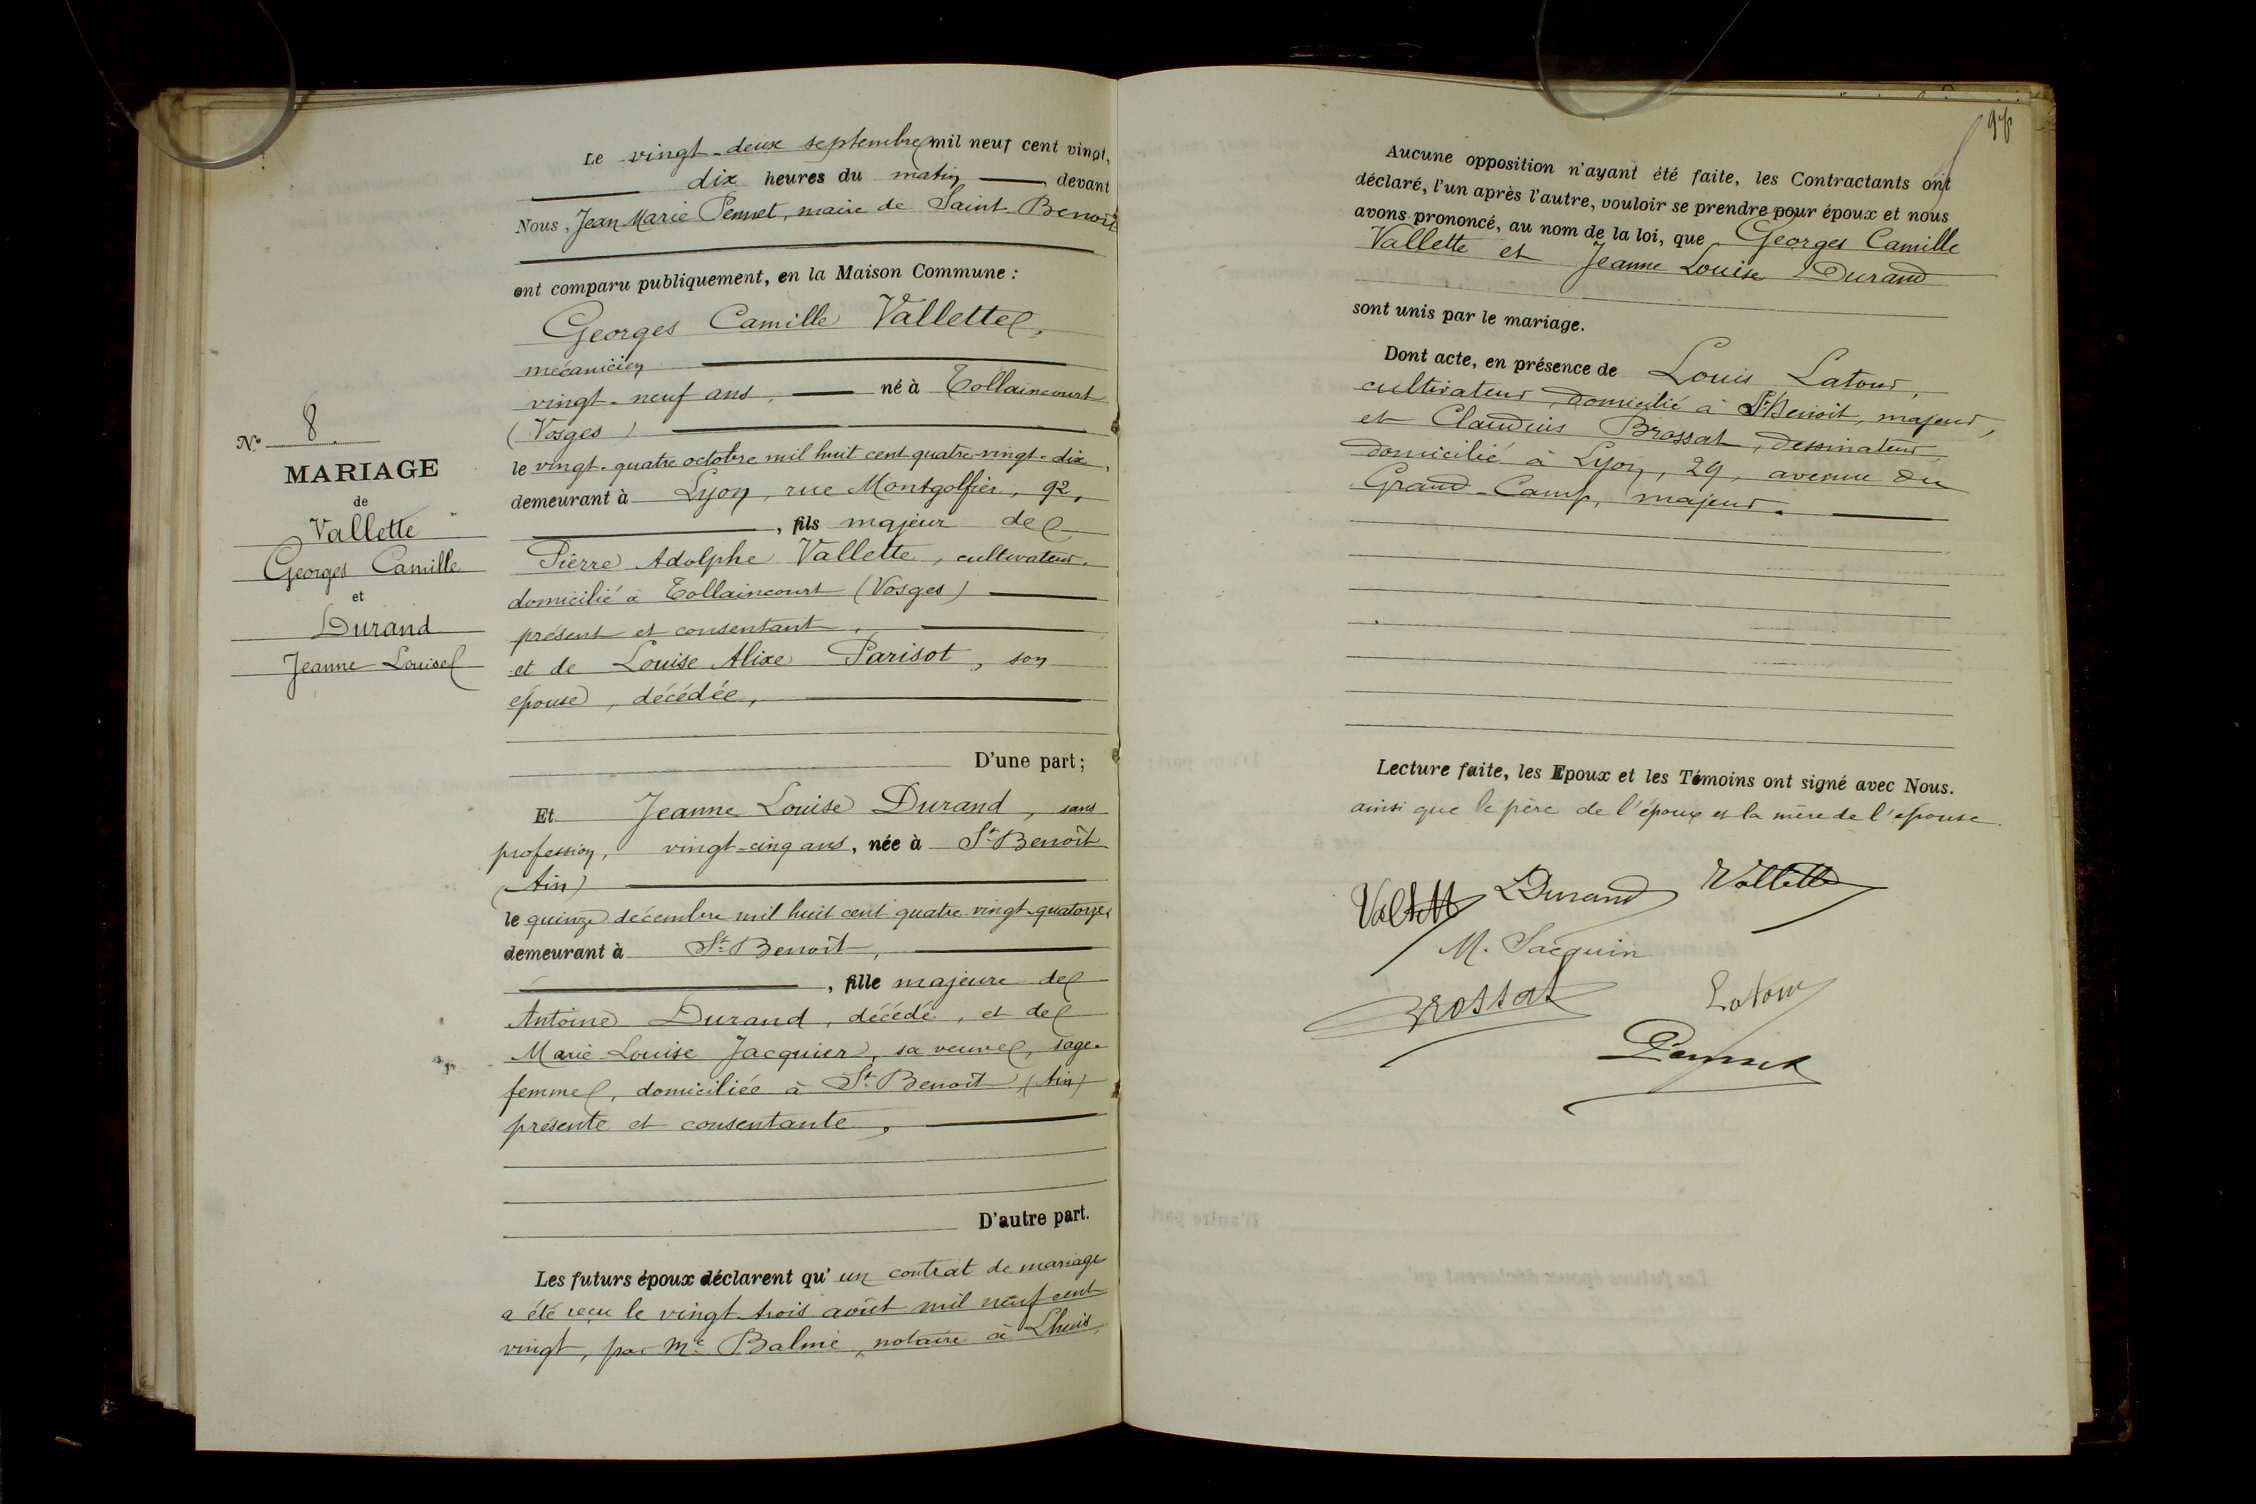 N° 8
MARIAGE
de
Vallette
Georges Camille
et
Durand
Jeanne Louise
Le vingt-deux septembre mil neuf cent vingt,
dix heures du matin, devant
Nous, Jean Marie Pennet, maire de Saint-Benoît
ont comparu publiquement, en la Maison Commune :
Georges Camille Vallette,
mécanicien
vingt-neuf ans, né à Tollaincourt
(Vosges)
le vingt-quatre octobre mil huit cent quatre-vingt-dix,
demeurant à Lyon, rue Montgolfier, 92,
, fils majeur de
Pierre Adolphe Vallette, cultivateur,
domicilié à Tollaincourt (Vosges)
présent et consentant,
et de Louise Alixe Parisot, son
épouse, décédée,
D'une part ;
Et Jeanne Louise Durand, sans
profession, vingt-cinq ans, née à St Benoît
(Ain)
le quinze décembre mil huit cent quatre-vingt-quatorze,
demeurant à St Benoît,
, fille majeure de
Antoine Durand, décédé, et de
Marie-Louise Jacquier, sa veuve, sage-
femme, domiciliée à St Benoît (Ain)
présente et consentante,
D'autre part.
Les futurs époux déclarent qu'un contrat de mariage
a été reçu le vingt-trois août mil neuf cent
vingt, par Me Balme, notaire à Lhuis,
Aucune opposition n'ayant été faite, les Contractants ont
déclaré, l'un après l'autre, vouloir se prendre pour époux et nous
avons prononcé, au nom de la loi, que Georges Camille
Vallette et Jeanne Louise Durand
sont unis par le mariage.
Dont acte, en présence de Louis Latour,
cultivateur, domicilié à St Benoit, majeur,
et Claudius Brossat, dessinateur
domicilié à Lyon, 29, avenue du
Grand-Camp, majeur.
Lecture faite, les Epoux et les Témoins ont signé avec Nous.
ainsi que le père de l'époux et la mère de l'épouse
Vallette Durand Vallette
M. Jacquin
Brossat Latour
Pennet